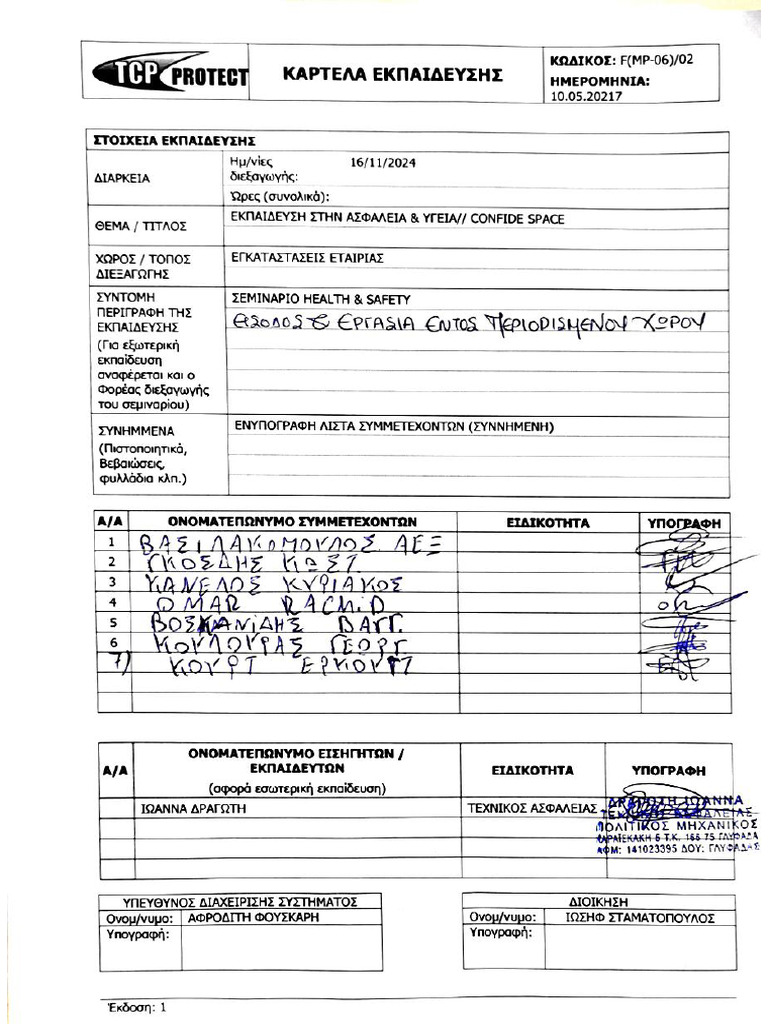 TCP PROTECT
ΚΑΡΤΕΛΑ ΕΚΠΑΙΔΕΥΣΗΣ
ΚΩΔΙΚΟΣ: F(MP-06)/02
ΗΜΕΡΟΜΗΝΙΑ:
10.05.20217
ΣΤΟΙΧΕΙΑ ΕΚΠΑΙΔΕΥΣΗΣ
ΔΙΑΡΚΕΙΑ
Ημ/νίες διεξαγωγής: 16/11/2024
Ώρες (συνολικά):
ΘΕΜΑ / ΤΙΤΛΟΣ
ΕΚΠΑΙΔΕΥΣΗ ΣΤΗΝ ΑΣΦΑΛΕΙΑ & ΥΓΕΙΑ// CONFIDE SPACE
ΧΩΡΟΣ / ΤΟΠΟΣ
ΔΙΕΞΑΓΩΓΗΣ
ΕΓΚΑΤΑΣΤΑΣΕΙΣ ΕΤΑΙΡΙΑΣ
ΣΥΝΤΟΜΗ
ΠΕΡΙΓΡΑΦΗ ΤΗΣ
ΕΚΠΑΙΔΕΥΣΗΣ
(Για εξωτερική
εκπαίδευση
αναφέρεται και ο
Φορέας διεξαγωγής
του σεμιναρίου)
ΣΕΜΙΝΑΡΙΟ HEALTH & SAFETY
ΕΙΣΟΔΟΣ & ΕΡΓΑΣΙΑ ΕΝΤΟΣ ΠΕΡΙΟΡΙΣΜΕΝΟΥ ΧΩΡΟΥ
ΣΥΝΗΜΜΕΝΑ
(Πιστοποιητικά,
Βεβαιώσεις,
φυλλάδια κλπ.)
ΕΝΥΠΟΓΡΑΦΗ ΛΙΣΤΑ ΣΥΜΜΕΤΕΧΟΝΤΩΝ (ΣΥΝΝΗΜΕΝΗ)
Α/Α ΟΝΟΜΑΤΕΠΩΝΥΜΟ ΣΥΜΜΕΤΕΧΟΝΤΩΝ ΕΙΔΙΚΟΤΗΤΑ ΥΠΟΓΡΑΦΗ
1 ΒΑΣΙΛΑΚΟΠΟΥΛΟΣ ΑΛΕΞ
2 ΓΚΟΣΔΗΣ ΚΩΣΤ.
3 ΚΑΝΕΛΟΣ ΚΥΡΙΑΚΟΣ
4 OMAR RACHID
5 ΒΟΣΚΑΝΙΔΗΣ ΒΑΓΓ.
6 ΚΟΥΛΟΥΡΑΣ ΓΕΩΡΓ
7) ΚΟΥΡΤ
Α/Α ΟΝΟΜΑΤΕΠΩΝΥΜΟ ΕΙΣΗΓΗΤΩΝ / ΕΚΠΑΙΔΕΥΤΩΝ ΕΙΔΙΚΟΤΗΤΑ ΥΠΟΓΡΑΦΗ
(αφορά εσωτερική εκπαίδευση)
ΙΩΑΝΝΑ ΔΡΑΓΩΤΗ ΤΕΧΝΙΚΟΣ ΑΣΦΑΛΕΙΑΣ
ΙΩΑΝΝΑ
ΤΕΧΝΙΚΟΣ ΑΣΦΑΛΕΙΑΣ
ΠΟΛΙΤΙΚΟΣ ΜΗΧΑΝΙΚΟΣ
ΚΑΡΑΪΣΚΑΚΗ 6 Τ.Κ. 166 75 ΓΛΥΦΑΔΑ
ΑΦΜ: 141023395 ΔΟΥ: ΓΛΥΦΑΔΑΣ
ΥΠΕΥΘΥΝΟΣ ΔΙΑΧΕΙΡΙΣΗΣ ΣΥΣΤΗΜΑΤΟΣ
Ονομ/νυμο: ΑΦΡΟΔΙΤΗ ΦΟΥΣΚΑΡΗ
Υπογραφή:
ΔΙΟΙΚΗΣΗ
Ονομ/νυμο: ΙΩΣΗΦ ΣΤΑΜΑΤΟΠΟΥΛΟΣ
Υπογραφή:
Έκδοση: 1